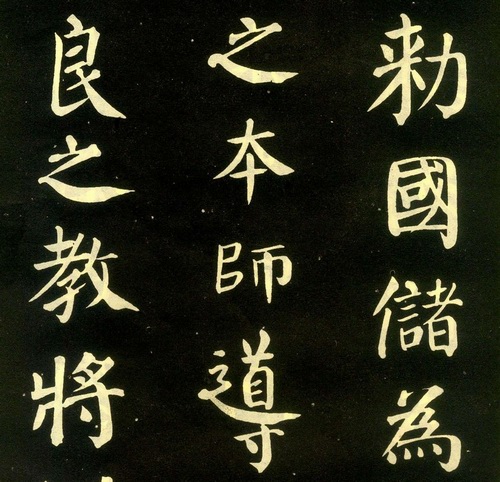 勑國儲為
之本師導
良之教將